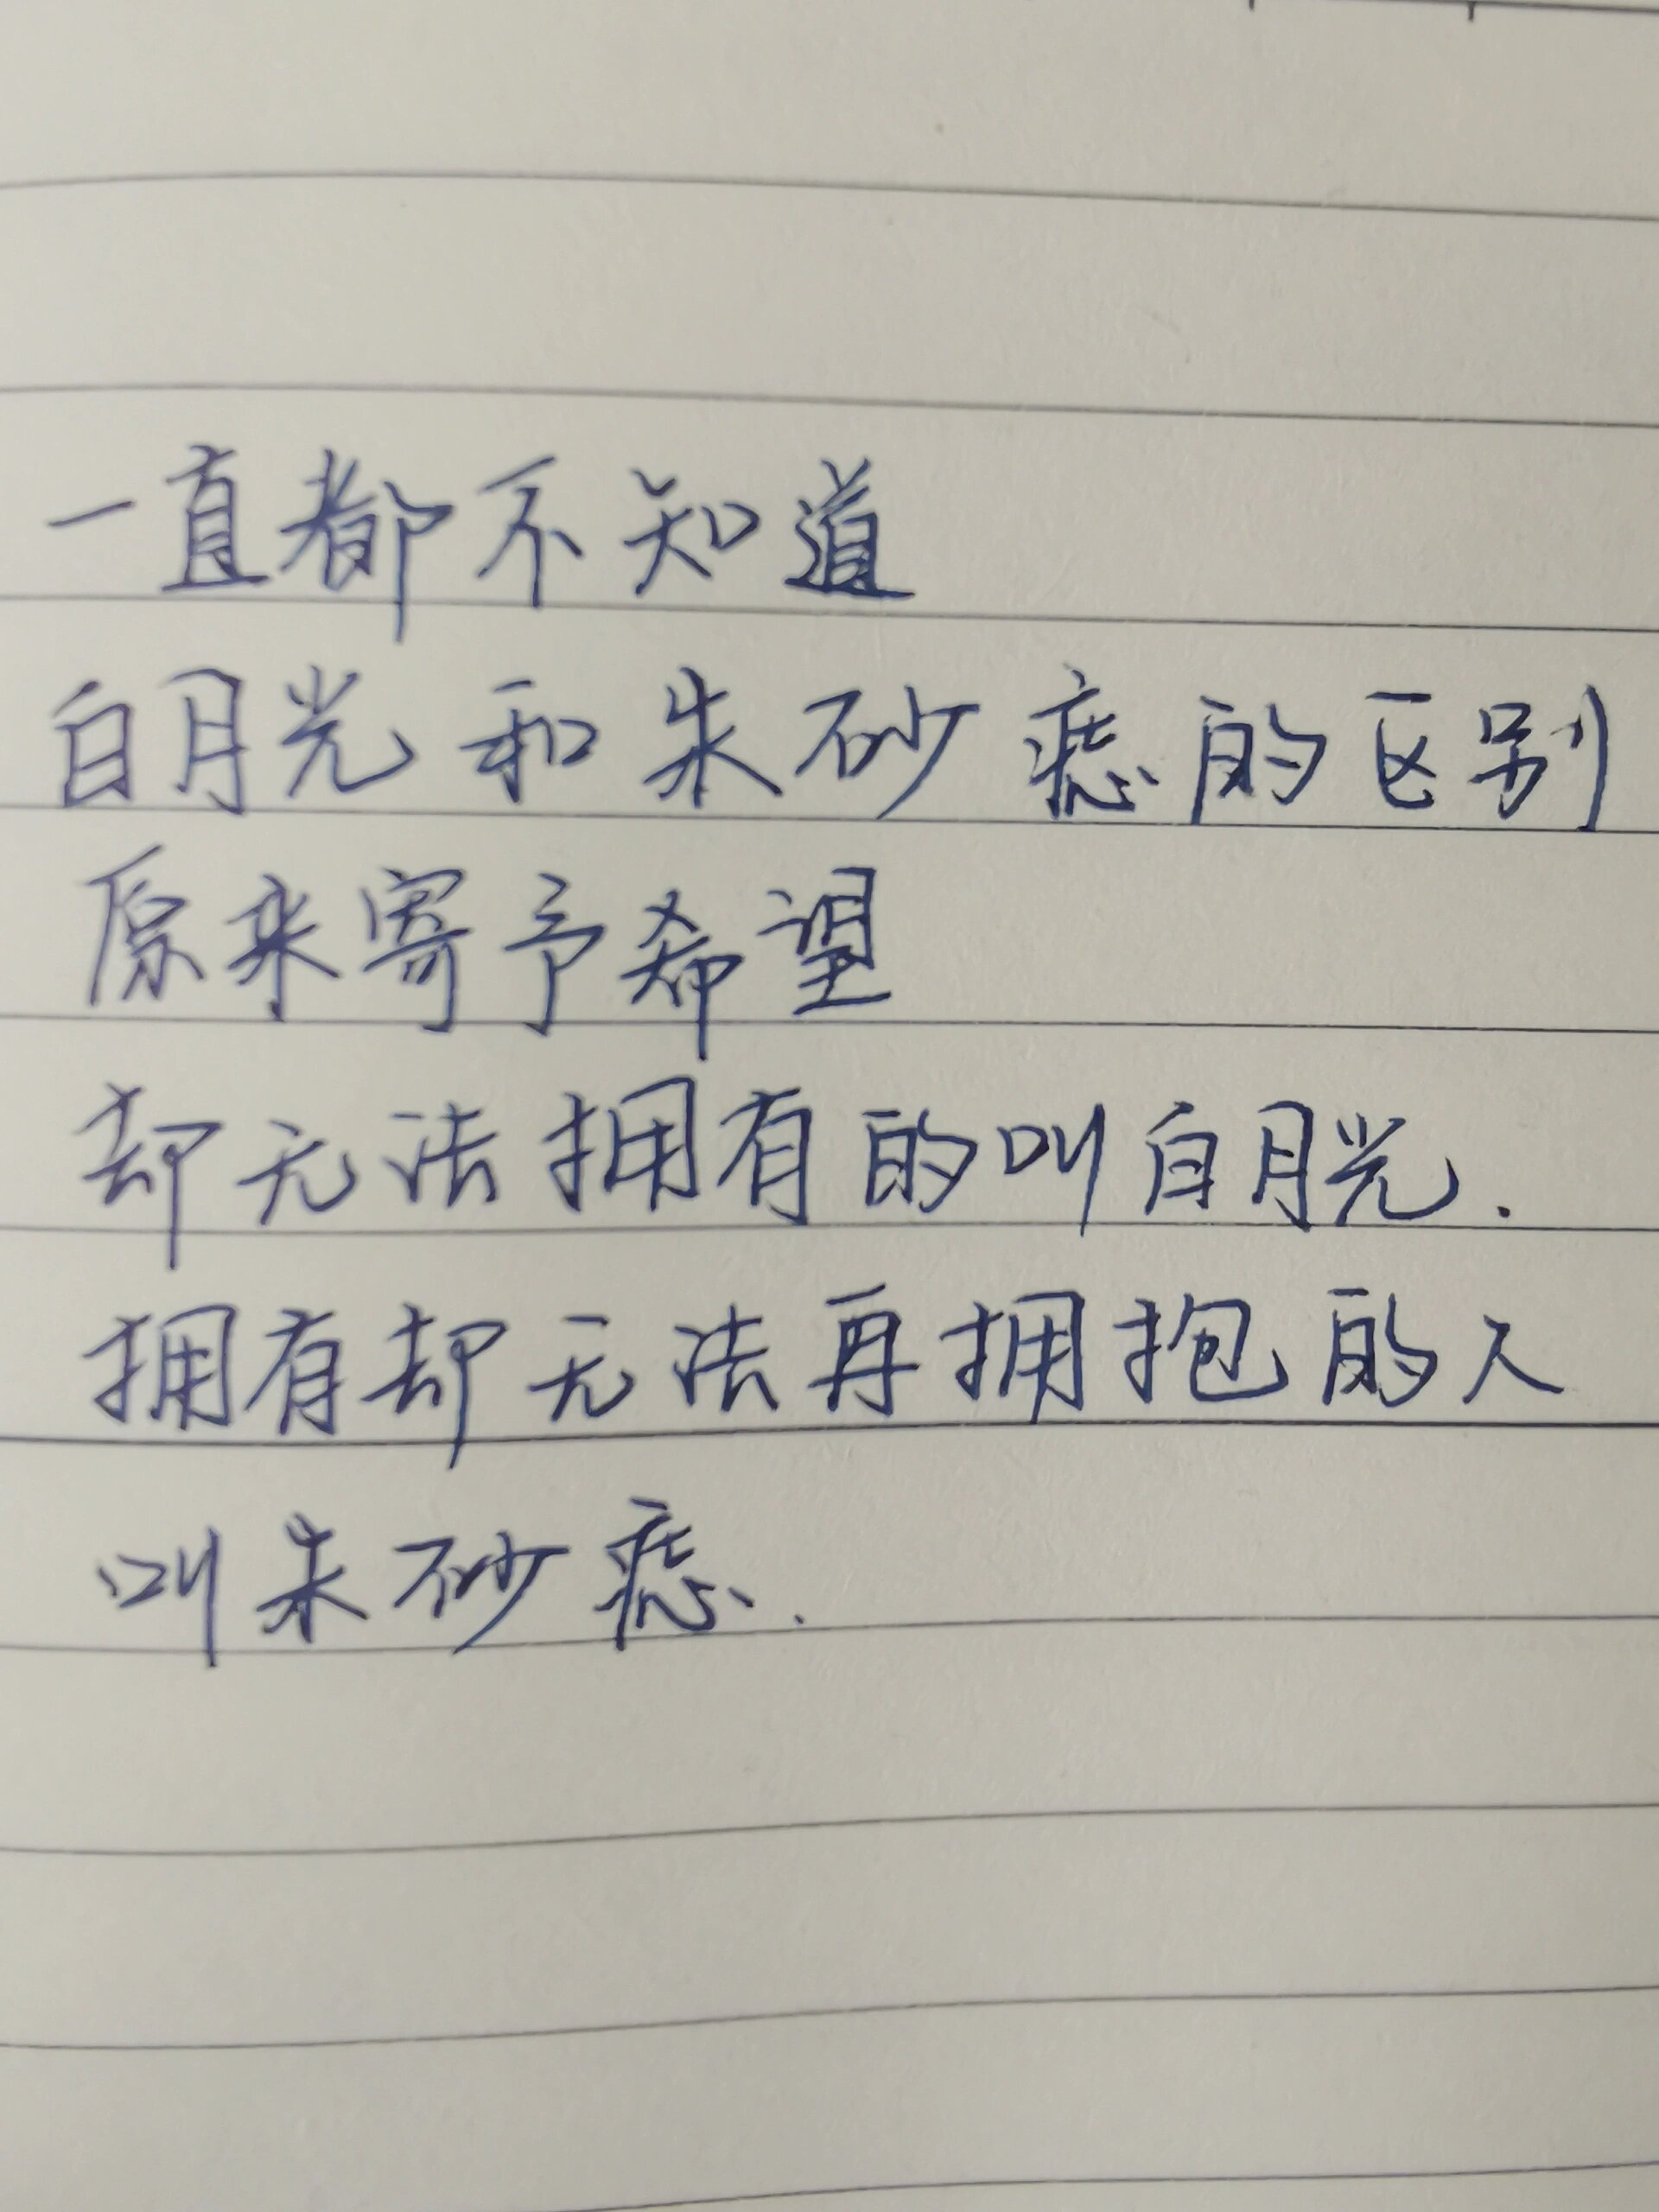 一直都不知道
白月光和朱砂痣的区别
原来寄予希望
却无法拥有的叫白月光.
拥有却无法再拥抱的人
叫朱砂痣.